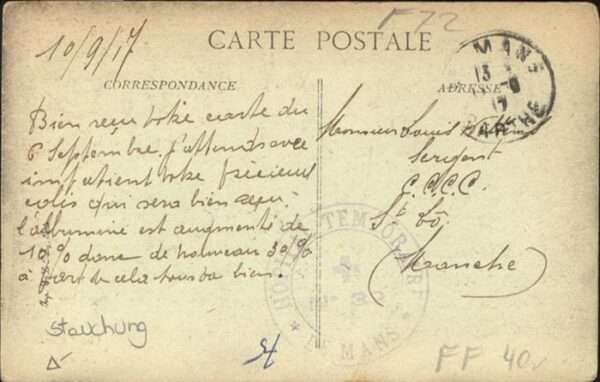 F72
10/9/17
CARTE POSTALE
CORRESPONDANCE
ADRESSE
MANS
13
9
17
SARTHE
Bien reçu votre carte du
6 Septembre, j'attends avec
impatient votre précieux
colis qui sera bien reçu.
l'albuminé est augmenté de
10% donc de nouveau 30%
à part de cela tous va bien.
Monsieur Louis
Sergent
C.C.C.C.
St Lô
(Manche)
HOPITAL TEMPORAIRE
MANS
Stauchung
FF 40.-